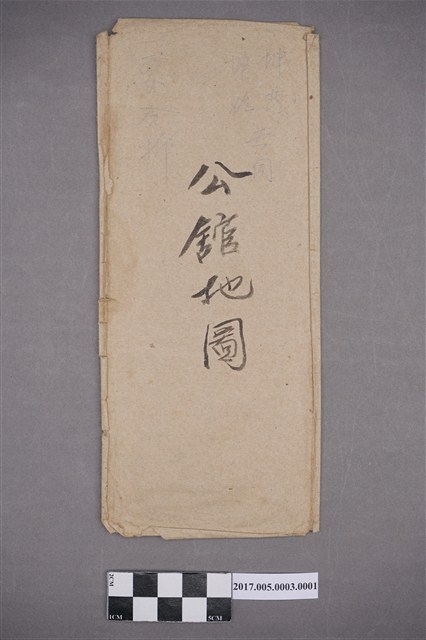 公舘地圖
2CM
1CM
5CM
2017.005.0003.0001